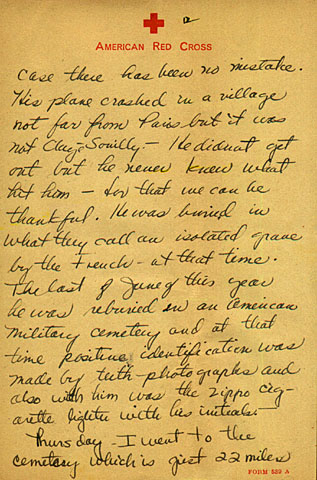 2
American Red Cross
case there has been no mistake.
His plane crashed in a village
not far from Paris but it was
not Clay-Souilly - He didn't get
out but he never knew what
hit him - for that we can be
thankful. He was buried in
what they call an isolated grave
by the French - at that time.
The last of June of this year
he was reburied in an American
military cemetery and at that
time positive identification was
made by teeth - photographs and
also with him was the zippo cig-
arette lighter with his initials. -
Thursday - I went to the
cemetery which is just 22 miles
FORM 539 A